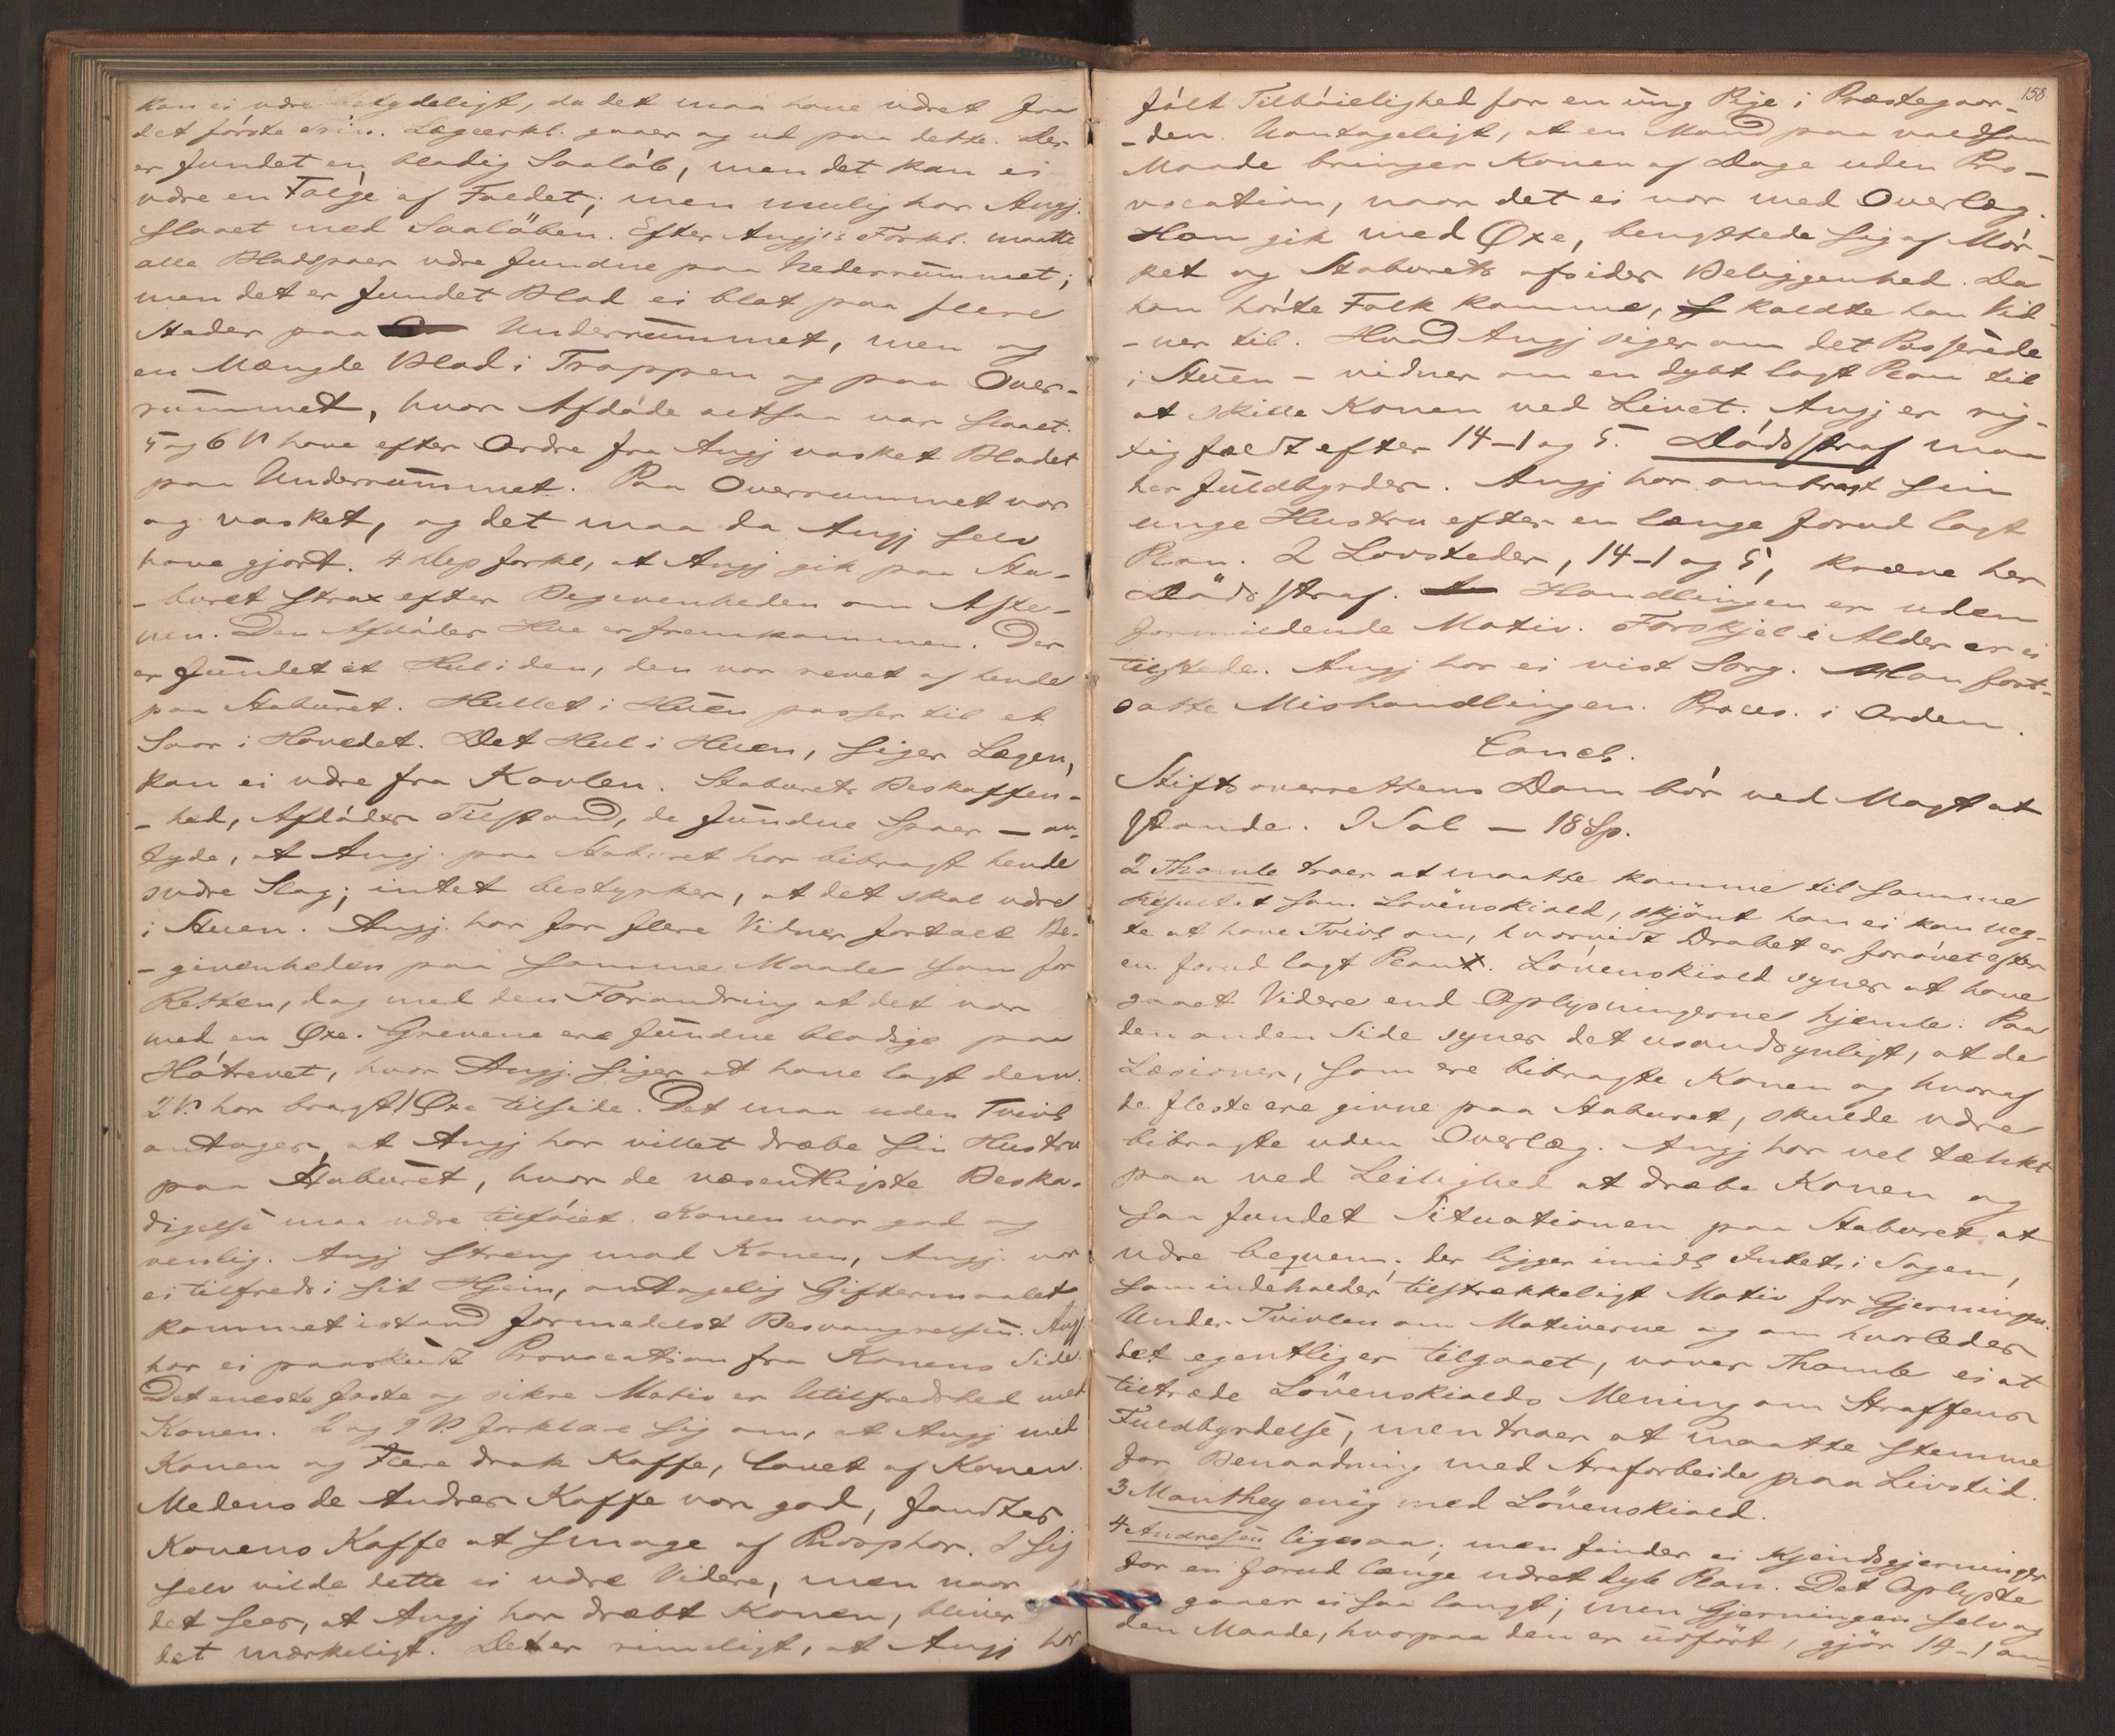 kan ei være betydeligt, da det maa have været fra
det første Trin. Lægeerkl. gaaer og ud paa dette. Der
er fundet en blodig Saaløb, men det kan ei
være en Følge af Faldet; men mulig har Angj.
slaaet med Saaløben. Efter Angj:s Forkl. maatte
alle Blodspoer være fundne paa Nederrummet;
men det er fundet Blod ei blot paa flere
Steder paa Underrummet, men og
en Mængde Blod i Trappen og paa Over-
rummet, hvor Afdøde altsaa var slaaet.
5 og 6 V have efter Ordre fra Angj vasket Blodet
paa Underrummet. Paa Overrummet var
og vasket, og det maa da Angj selv
have gjort. 4 Dep forkl, at Angj gik paa Sta-
-buret strax efter Begivenheden om Afte-
nen. Den Afdødes Hue er fremkommen. Der
er fundet et Hul i den, den var revet af hende
paa Staburet. Hullet i Huen passer til et
Saar i Hovedet. Det Hul i Huen, siger Lægen,
kan ei være fra Kavlen. Staburets Beskaffen-
-hed, Afdødes Tilstand, de fundne Spoer — an-
tyde, at Angj. paa Staburet har bibragt hende
svære Slag; intet bestyrker, at det skal være
i Stuen. Angj. har for flere Vidner fortalt Be-
-givenheden paa samme Maade som for
Retten, dog med den Forandring at det var
med en Øxe. Grevene ere fundne blodige paa
Hátrevet, hvor Angj. siger at have lagt dem.
2 V. har bragt Øxe tilside. Det maa uden Tvivl
antages, at Angj har villet dræbe sin Hustru
paa Staburet, hvor de væsentligste Beska-
digelse maa være tilføiet. Konen var god og
venlig. Angj streng mod Konen, Angj. var
ei tilfreds i sit Hjem, antagelig Giftermaalet
kommet istand formedelst Besvangrelsen. Angj
har ei paaskudt Provocation fra Konens Side.
Det eneste faste og sikre Motiv er Utilfredshed med
Konen. 2 og 9 V. forklare sig om, at Angj med
Konen og Flere drak Kaffe, lavet af Konen.
Medens de Andres Kaffe var god, fandtes
Konens Kaffe at smage af Phosphor. I sig
selv vilde dette ei være Videre, men naar
det sees, at Angj har dræbt Konen, bliver
det mærkeligt. Det er rimeligt, at Angj har
158
følt Tilbøielighed for en ung Pige i Præstegaar-
-den. Uantageligt, at en Mand paa voldsom
Maade bringer Konen af Dage uden Pro-
vocation, naar det ei var med Overlæg.
Han gik med Øxe, benyttede sig af Mør-
ket og Staburets afsides Beliggenhed. Da
han hørte Folk komme, kaldte han Vid-
-ner til. Hvad Angj siger om det Passerede
i Stuen — vidner om en dybt lagt Plan til
at skille Konen ved Livet. Angj er rig-
tig fældt efter 14-1 og 5. Dødsstraf maa
her fuldbyrdes. Angj har ombragt sin
unge Hustru efter en længe forud lagt
Plan. 2 Lovsteder, 14-1 og 5, kræve her
Dødsstraf. Handlingen er uden
formildende Motiv. Forskjel i Alder er ei
tilstede. Angj har ei vist Sorg. Han fort-
satte Mishandlingen. Proces. i Orden.
Concl.
Stiftsoverrettens Dom bør ved Magt at
stande. I Sal — 18 Sp.
2 Thomle troer at maatte komme til samme
Resultat som Løvenskiold, skjønt han ei kan neg-
te at have Tvivl om, hvorvidt Drabet er forøvet efter
en forud lagt Plan. Løvenskiold synes at have
gaaet Videre end Oplysningerne hjemle. Paa
den anden Side synes det usandsynligt, at de
Læsioner, som ere bibragte Konen og hvoraf
de fleste ere givne paa Staburet, skulde være
bibragte uden Overlæg. Angj har vel tænkt
paa ved Leilighed at dræbe Konen og
saa fundet Situationen paa Staburet at
være beqvem; der ligger imidl Intet i Sagen,
som indeholder tilstrækkeligt Motiv for Gjerningen.
Under Tvivlen om Motiverne og om hvorledes
det egentlig er tilgaaet, vover Thomle ei at
tiltræde Løvenskiolds Mening om Straffens
Fuldbyrdelse, men troer at maatte stemme
for Benaadning med Strafarbeide paa Livstid.
3 Manthey enig med Løvenskiold.
4 Andresen ligesaa; men finder ei Kjendsgjerninger
for en forud længe været dyb Plan. Det Oplyste
gaaer ei saa langt; men Gjerningen selv og
den Maade, hvorpaa den er udført, gjør 14-1 an-